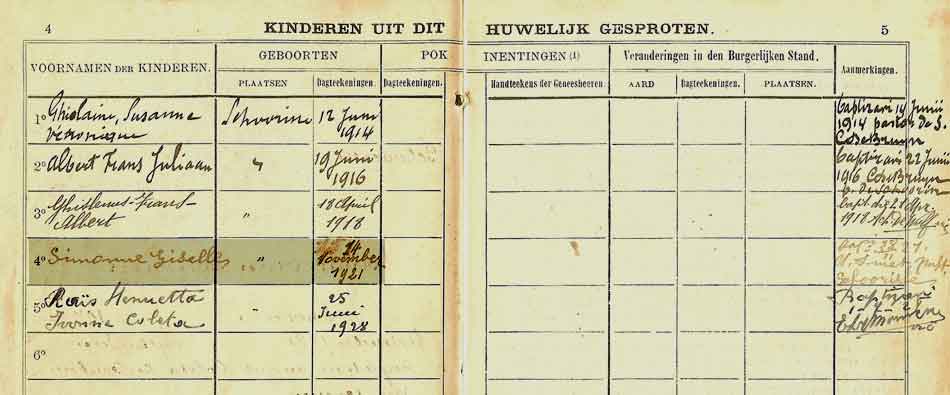 4 KINDEREN UIT DIT HUWELIJK GESPROTEN. 5
VOORNAMEN DER KINDEREN. GEBOORTEN POK INENTINGEN (1) Veranderingen in den Burgerlijken Stand. Aanmerkingen.
PLAATSEN Dagteekeningen. Dagteekeningen. Handteekens der Geneesheeren. AARD Dagteekeningen. PLAATSEN
1° Ghislaine, Susanna Schoorisse 12 Juni
Véronique 1914
2° Albert Frans Juliaan " 19 Juni
1916
3° Ghislenus-Frans- " 18 April
Albert 1918
4° Simonne Giselle " 24
November
1921
5° Henrietta " 25
Ivonne Coleta Juni
1928
6°
Baptizavi 14 Junii
1914 pastor
Baptizavi 22 Junii
1916
1918
Baptizavi